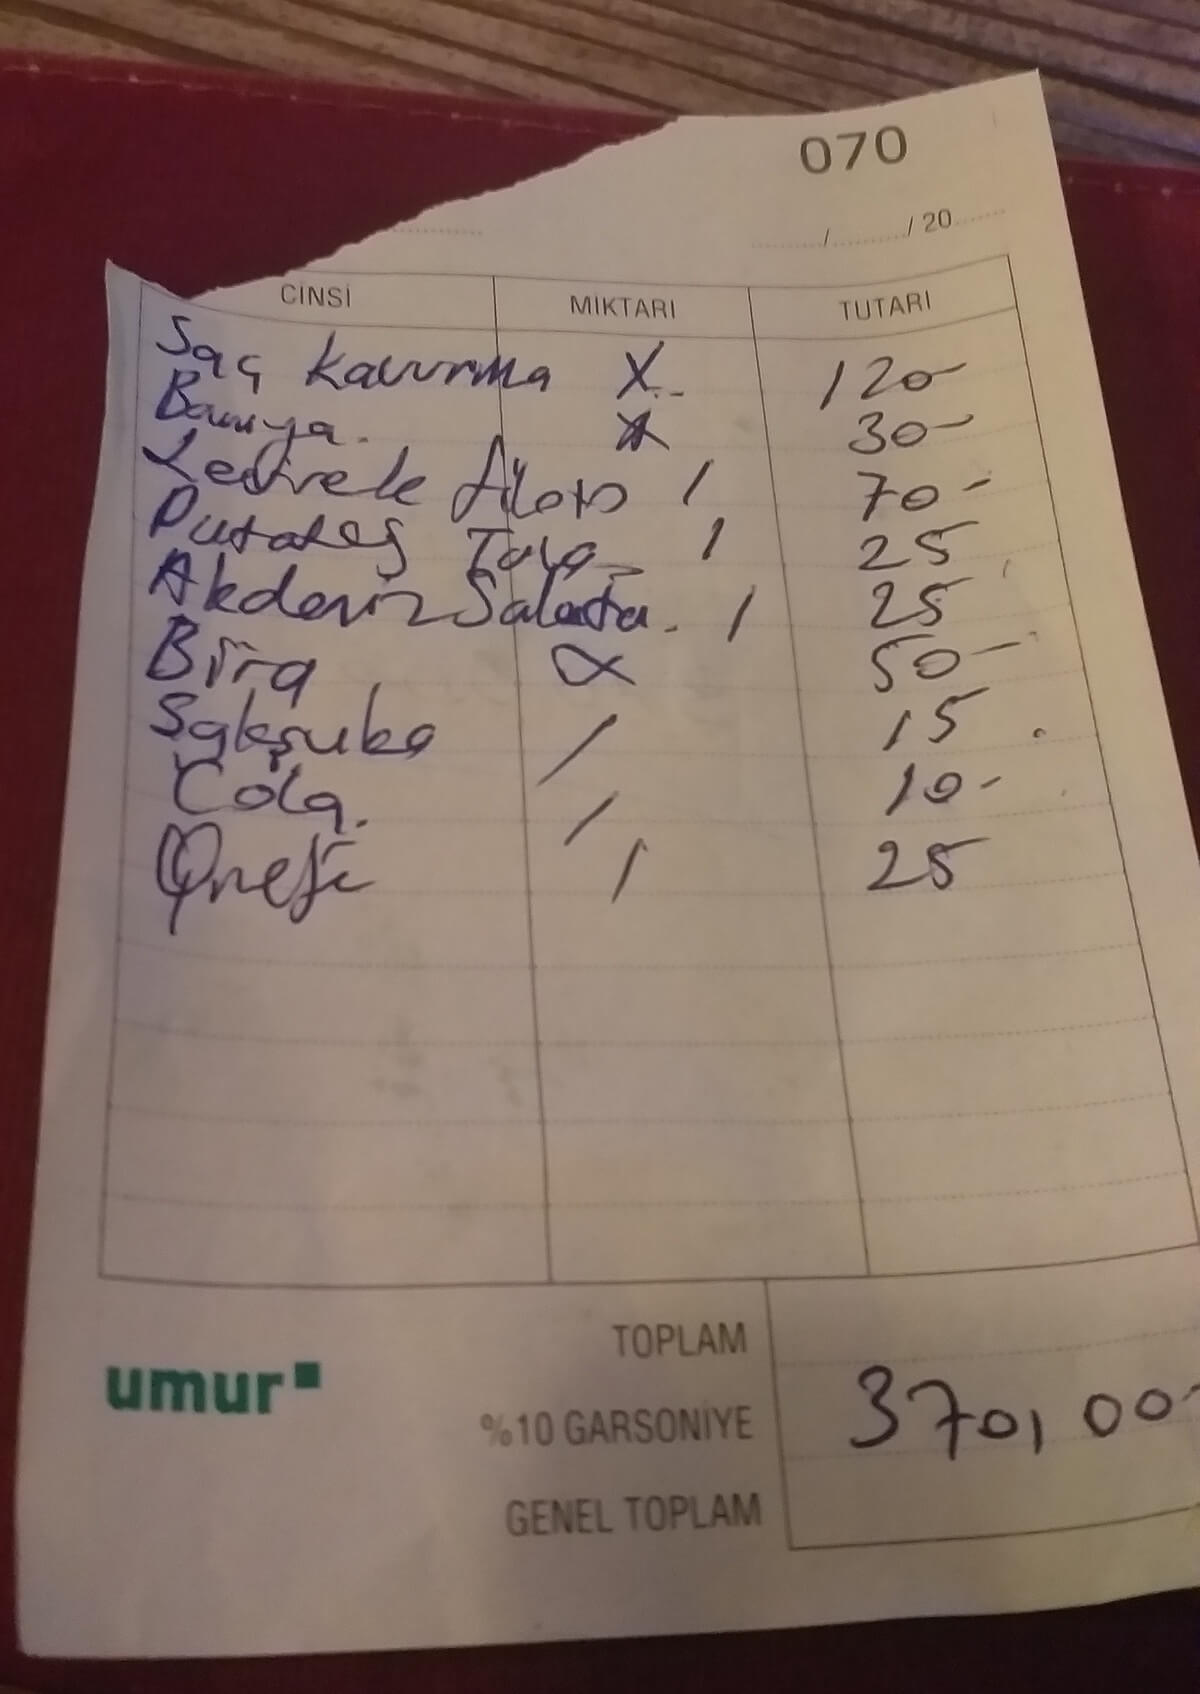 070
/ / 20
CİNSİ MİKTARI TUTARI
Saç kavurma X 120-
Bamya. X 30-
Levrek fileto 1 70-
Patates Tava 1 25
Akdeniz Salata. 1 25
Bira X 50-
Şakşuka / 15
Cola. / 10-
1 25
TOPLAM
%10 GARSONİYE 370,00-
GENEL TOPLAM
umur